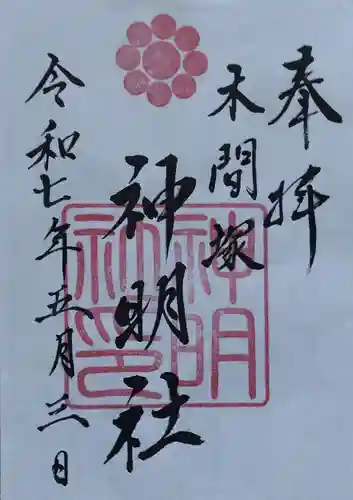 奉拝
木間塚
神明社
令和七年五月三日
神明
社印